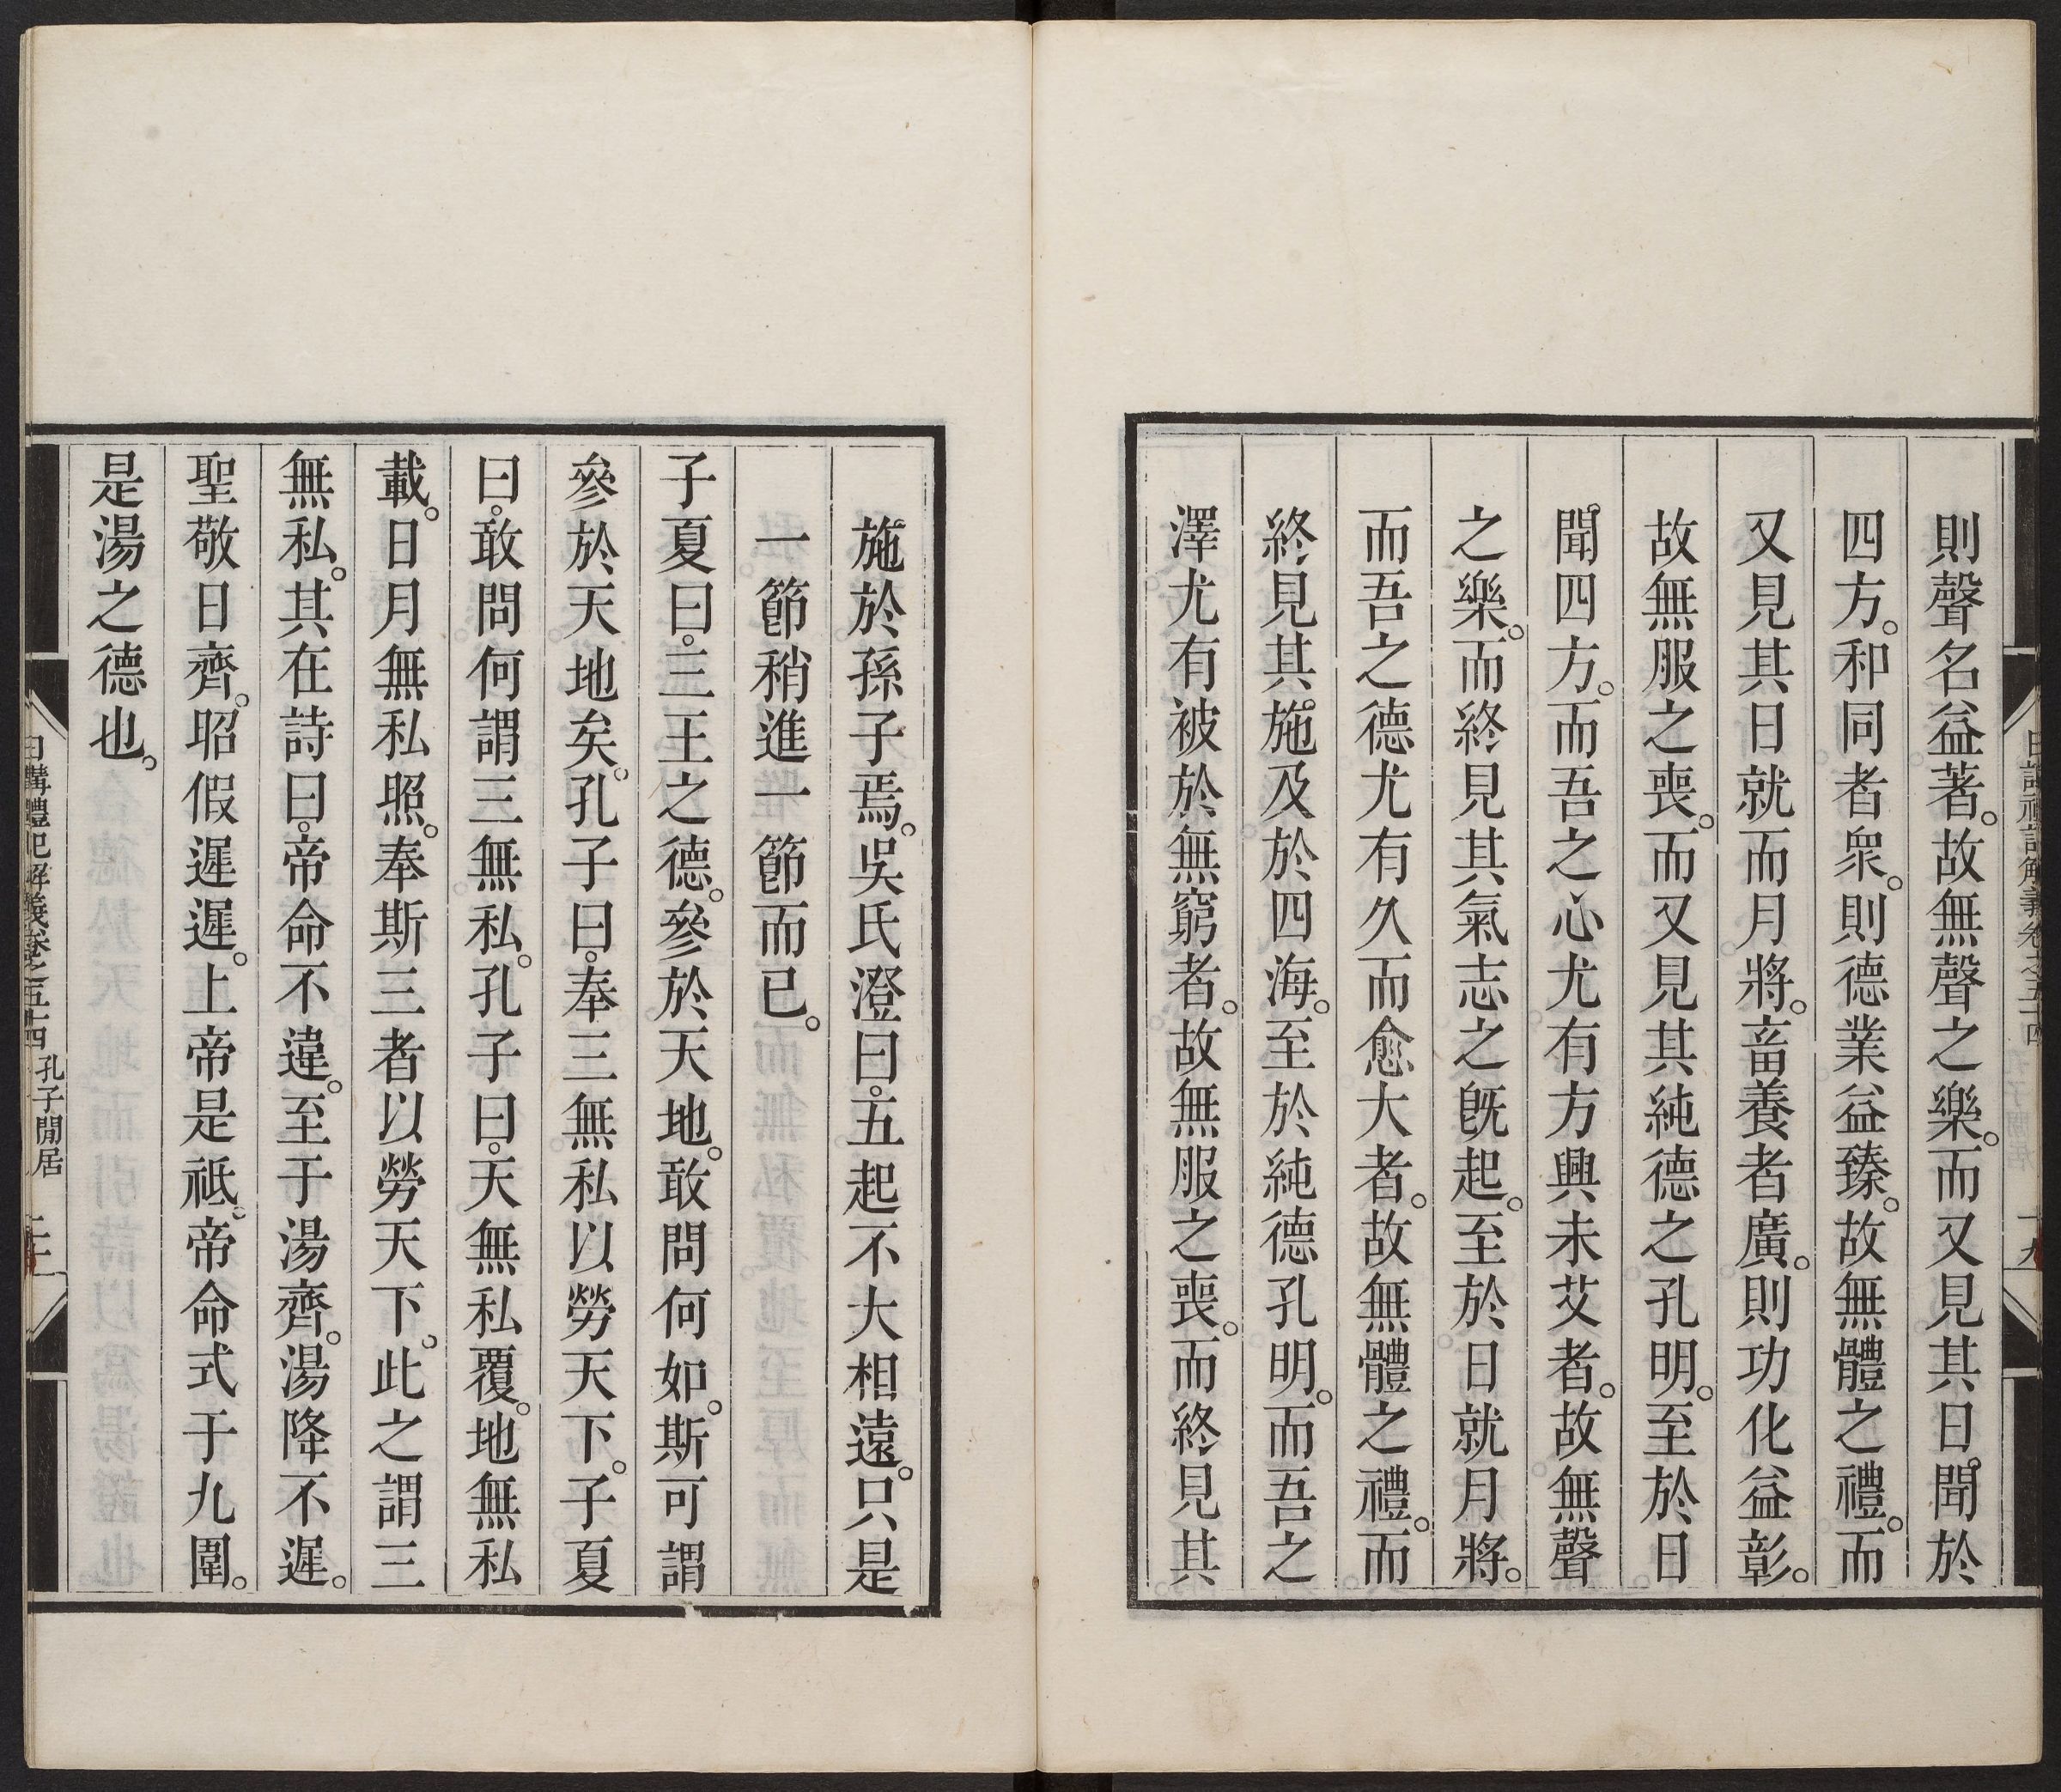 則聲名益著。故無聲之樂。而又見其日。聞於
四方。和同者衆。則德業益臻。故無體之禮。而
又見其日就而月將。畜養者廣。則功化益彰。
故無服之喪。而又見其純德之孔明。至於日
聞四方。而吾之心尤有方興未艾者。故無聲
之樂。而終見其氣志之旣起。至於日就月將。
而吾之德尤有久而愈大者。故無體之禮。而
終見其施及於四海。至於純德孔明。而吾之
澤尤有被於無窮者。故無服之喪。而終見其
施於孫子焉。吳氏澄曰。五起不大相遠。只是
一節稍進一節而已。
子夏曰。三王之德。參於天地。敢問何如。斯可謂
參於天地矣。孔子曰。奉三無私以勞天下。子夏
曰。敢問何謂三無私。孔子曰。天無私覆。地無私
載。日月無私照。奉斯三者以勞天下。此之謂三
無私。其在詩曰。帝命不違。至于湯齊。湯降不遲。
聖敬日齊。昭假遲遲。上帝是祗。帝命式于九圍。
是湯之德也。
日講禮記解義卷之五十四 孔子閒居 二十